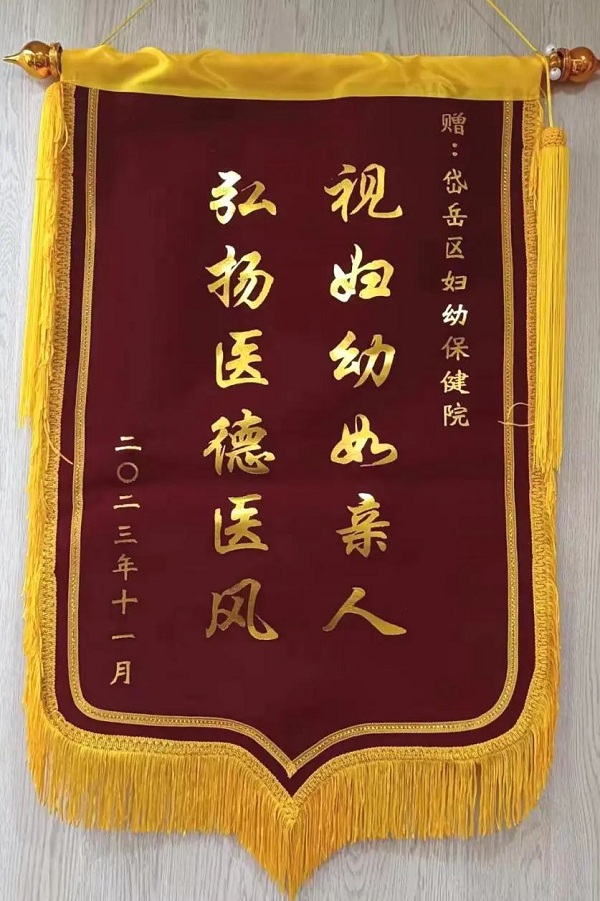 赠：岱岳区妇幼保健院
视妇幼如亲人
弘扬医德医风
二〇二三年十一月